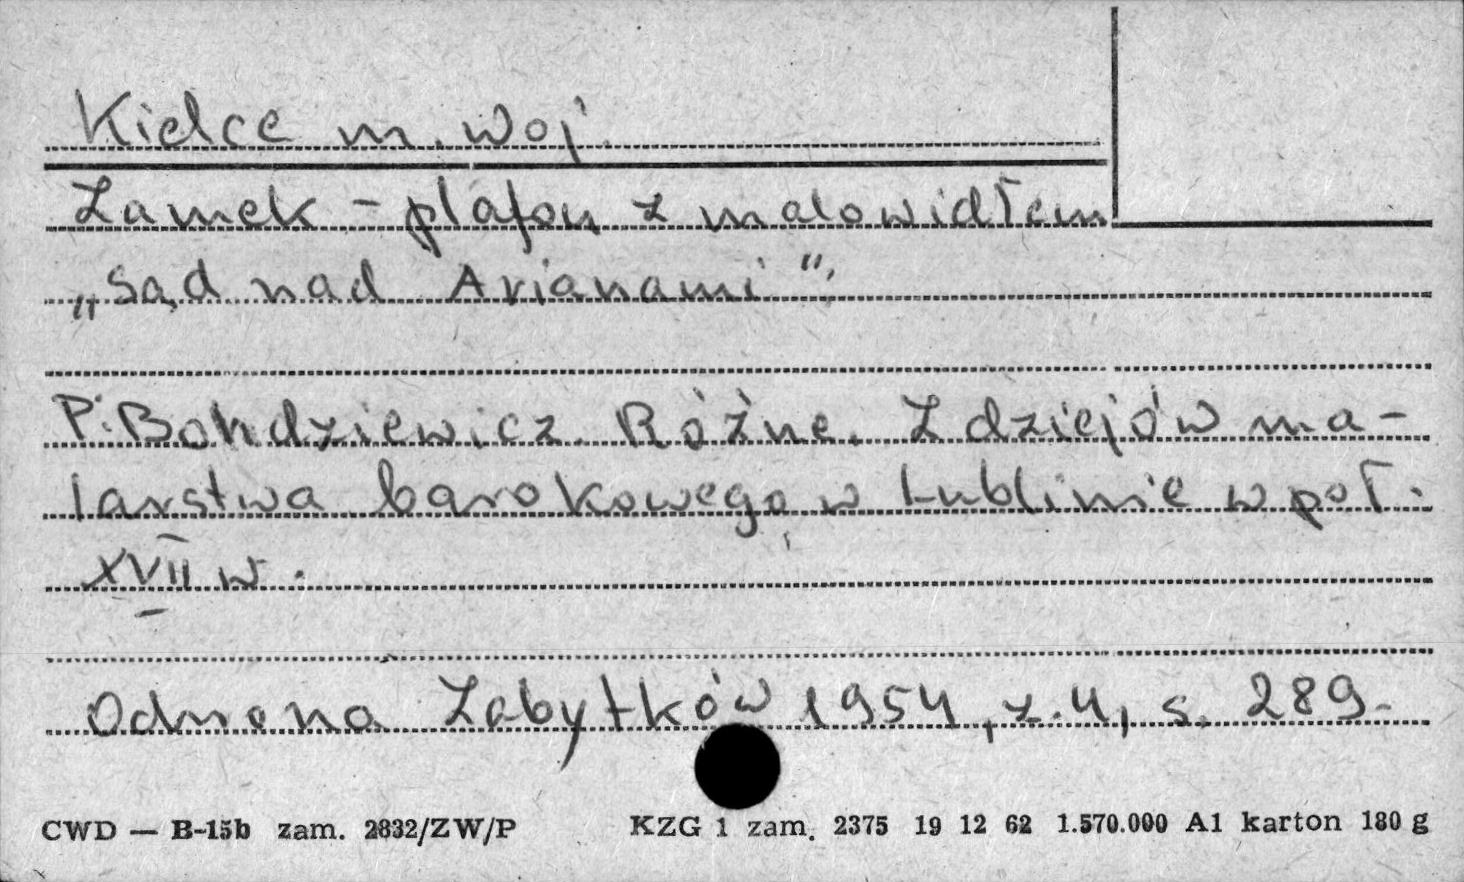 Kielce m. woj.
Zamek - plafon z malowidłem
„Sąd nad Arianami".
P. Bohdziewicz. Różne. Z dziejów ma-
larstwa barokowego w Lublinie w poł.
XVII w.
Ochrona Zabytków 1954, z. 4, s. 289.
CWD — B-15b zam. 2832/ZW/P KZG 1 zam. 2375 19 12 62 1.570.000 A1 karton 180 g